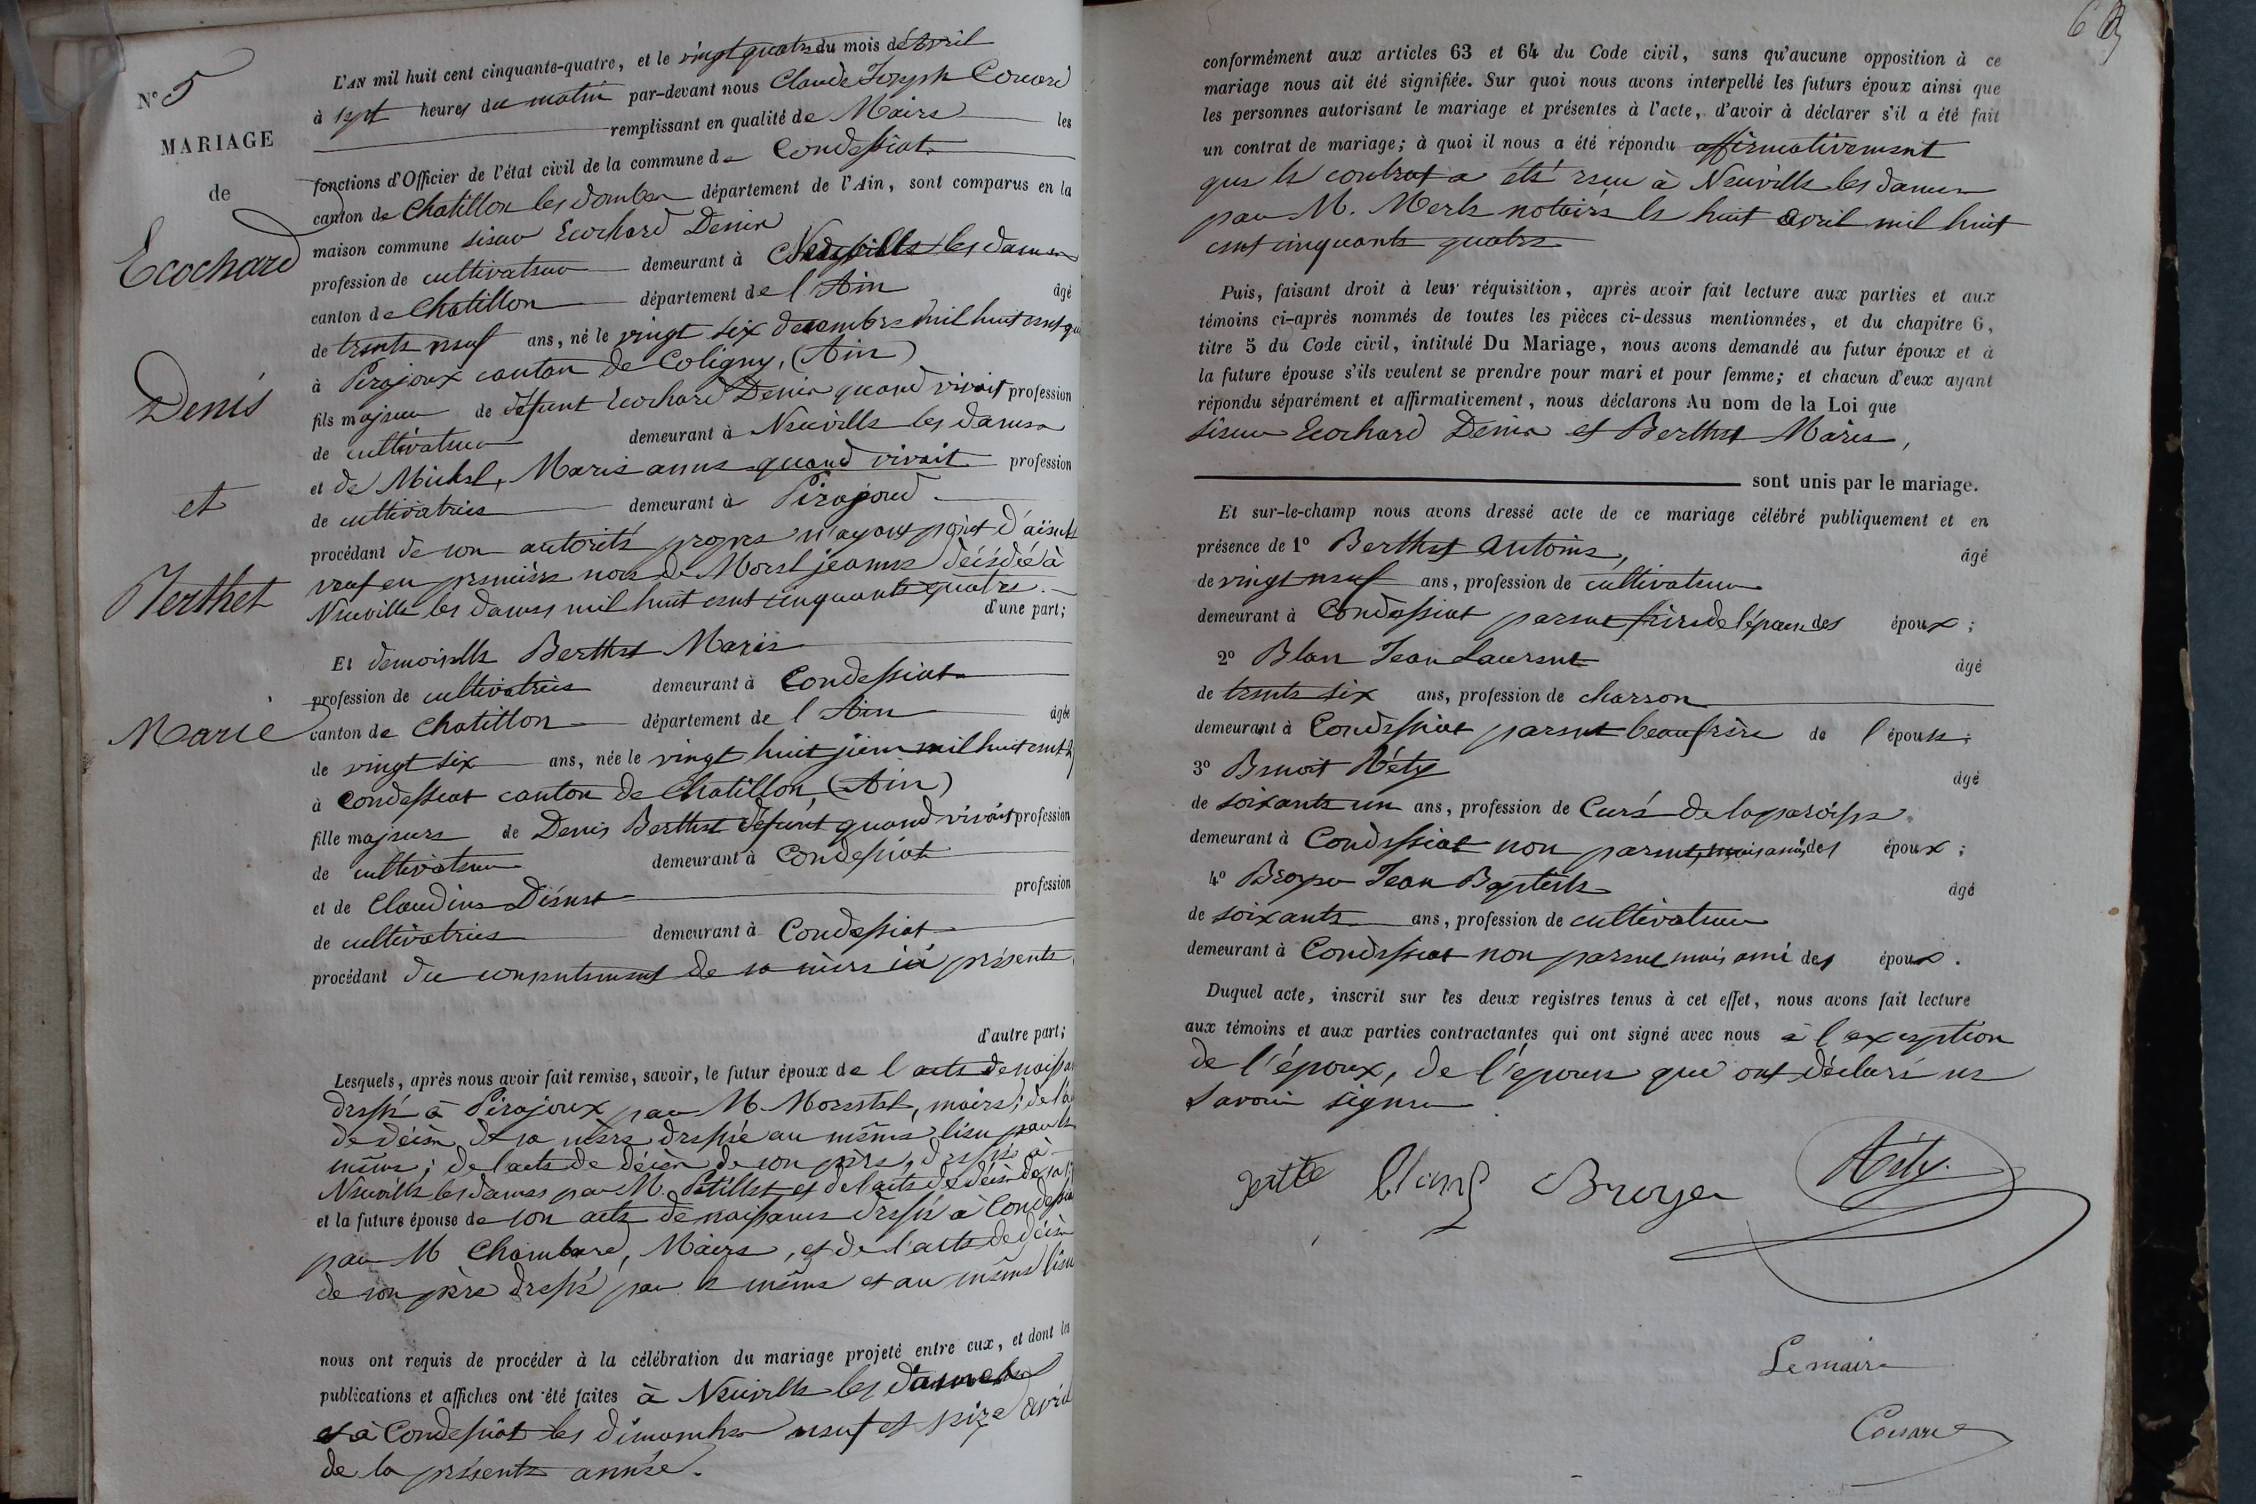 N° 5
MARIAGE
de
Ecochard
Denis
et
Berthet
Marie
L'AN mil huit cent cinquante-quatre, et le vingt quatre du mois d'avril
à sept heures du matin par-devant nous Claude Joseph Couard
remplissant en qualité de Maire les
fonctions d'Officier de l'état civil de la commune de Condessiat
canton de Chatillon les dombes département de l'Ain, sont comparus en la
maison commune sieur Ecochard Denis
profession de cultivateur demeurant à Neuville les dames
canton de Chatillon département de l'Ain âgé
de trente neuf ans, né le vingt six decembre mil huit cent
à Pirajoux canton de Coligny, (Ain)
fils majeur de défunt Ecochard Denis quand vivait profession
de cultivateur demeurant à Neuville les dames
et de Michel, Marie anne quand vivait profession
de cultivatrice demeurant à Pirajoux
procédant de son autorité propre n'ayant point d'aïeuls
veuf en premières noces de Morel jeanne décédée à
Neuville les dames mil huit cent cinquante quatre.
d'une part;
Et demoiselle Berthet Marie
profession de cultivatrice demeurant à Condessiat
canton de Chatillon département de l'Ain âgée
de vingt six ans, née le vingt huit juin mil huit cent
à Condessiat canton de Chatillon (Ain)
fille majeure de Denis Berthet défunt quand vivait profession
de cultivateur demeurant à Condessiat
et de Claudine profession
de cultivatrice demeurant à Condessiat
procédant du consentement de sa mère ici présente
d'autre part;
Lesquels, après nous avoir fait remise, savoir, le futur époux de l'acte de naissan
dressé à Pirajoux par M. maire; de l'
de décès de sa mère dressé au même lieu par le
même; de l'acte de décès de son père, dressé à
Neuville les dames par M. et de l'acte de décès de sa
et la future épouse de son acte de naissance dressé à Condessia
par M Chambard, Maire, et de l'acte de décès
de son père dressé par le même et au même lieu
nous ont requis de procéder à la célébration du mariage projeté entre eux, et dont les
publications et affiches ont été faites à Neuville les dames
et à Condessiat les dimanches neuf et seize avril
de la présente année.
conformément aux articles 63 et 64 du Code civil, sans qu'aucune opposition à ce
mariage nous ait été signifiée. Sur quoi nous avons interpellé les futurs époux ainsi que
les personnes autorisant le mariage et présentes à l'acte, d'avoir à déclarer s'il a été fait
un contrat de mariage; à quoi il nous a été répondu affirmativement
que le contrat a été reçu à Neuville les dames
par M. Merle notaire le huit avril mil huit
cent cinquante quatre
Puis, faisant droit à leur réquisition, après avoir fait lecture aux parties et aux
témoins ci-après nommés de toutes les pièces ci-dessus mentionnées, et du chapitre 6,
titre 5 du Code civil, intitulé Du Mariage, nous avons demandé au futur époux et à
la future épouse s'ils veulent se prendre pour mari et pour femme; et chacun d'eux ayant
répondu séparément et affirmativement, nous déclarons Au nom de la Loi que
sieur Ecochard Denis et Berthet Marie,
sont unis par le mariage.
Et sur-le-champ nous avons dressé acte de ce mariage célébré publiquement et en
présence de 1° Berthet Antoine, âgé
de vingt neuf ans, profession de cultivateur
demeurant à Condessiat parent frère de l'épouse des époux;
2° Blanc Jean Laurent âgé
de trente six ans, profession de charron
demeurant à Condessiat parent beaufrère de l'épouse;
3° Benoit Réty âgé
de soixante un ans, profession de Curé de la paroisse
demeurant à Condessiat non parent, mais ami des époux;
4° Broyer Jean Baptiste âgé
de soixante ans, profession de cultivateur
demeurant à Condessiat non parent mais ami des époux.
Duquel acte, inscrit sur les deux registres tenus à cet effet, nous avons fait lecture
aux témoins et aux parties contractantes qui ont signé avec nous à l'exception
de l'époux, de l'épouse qui ont déclaré ne
savoir signer
Broyer Réty.
Le maire
Couard